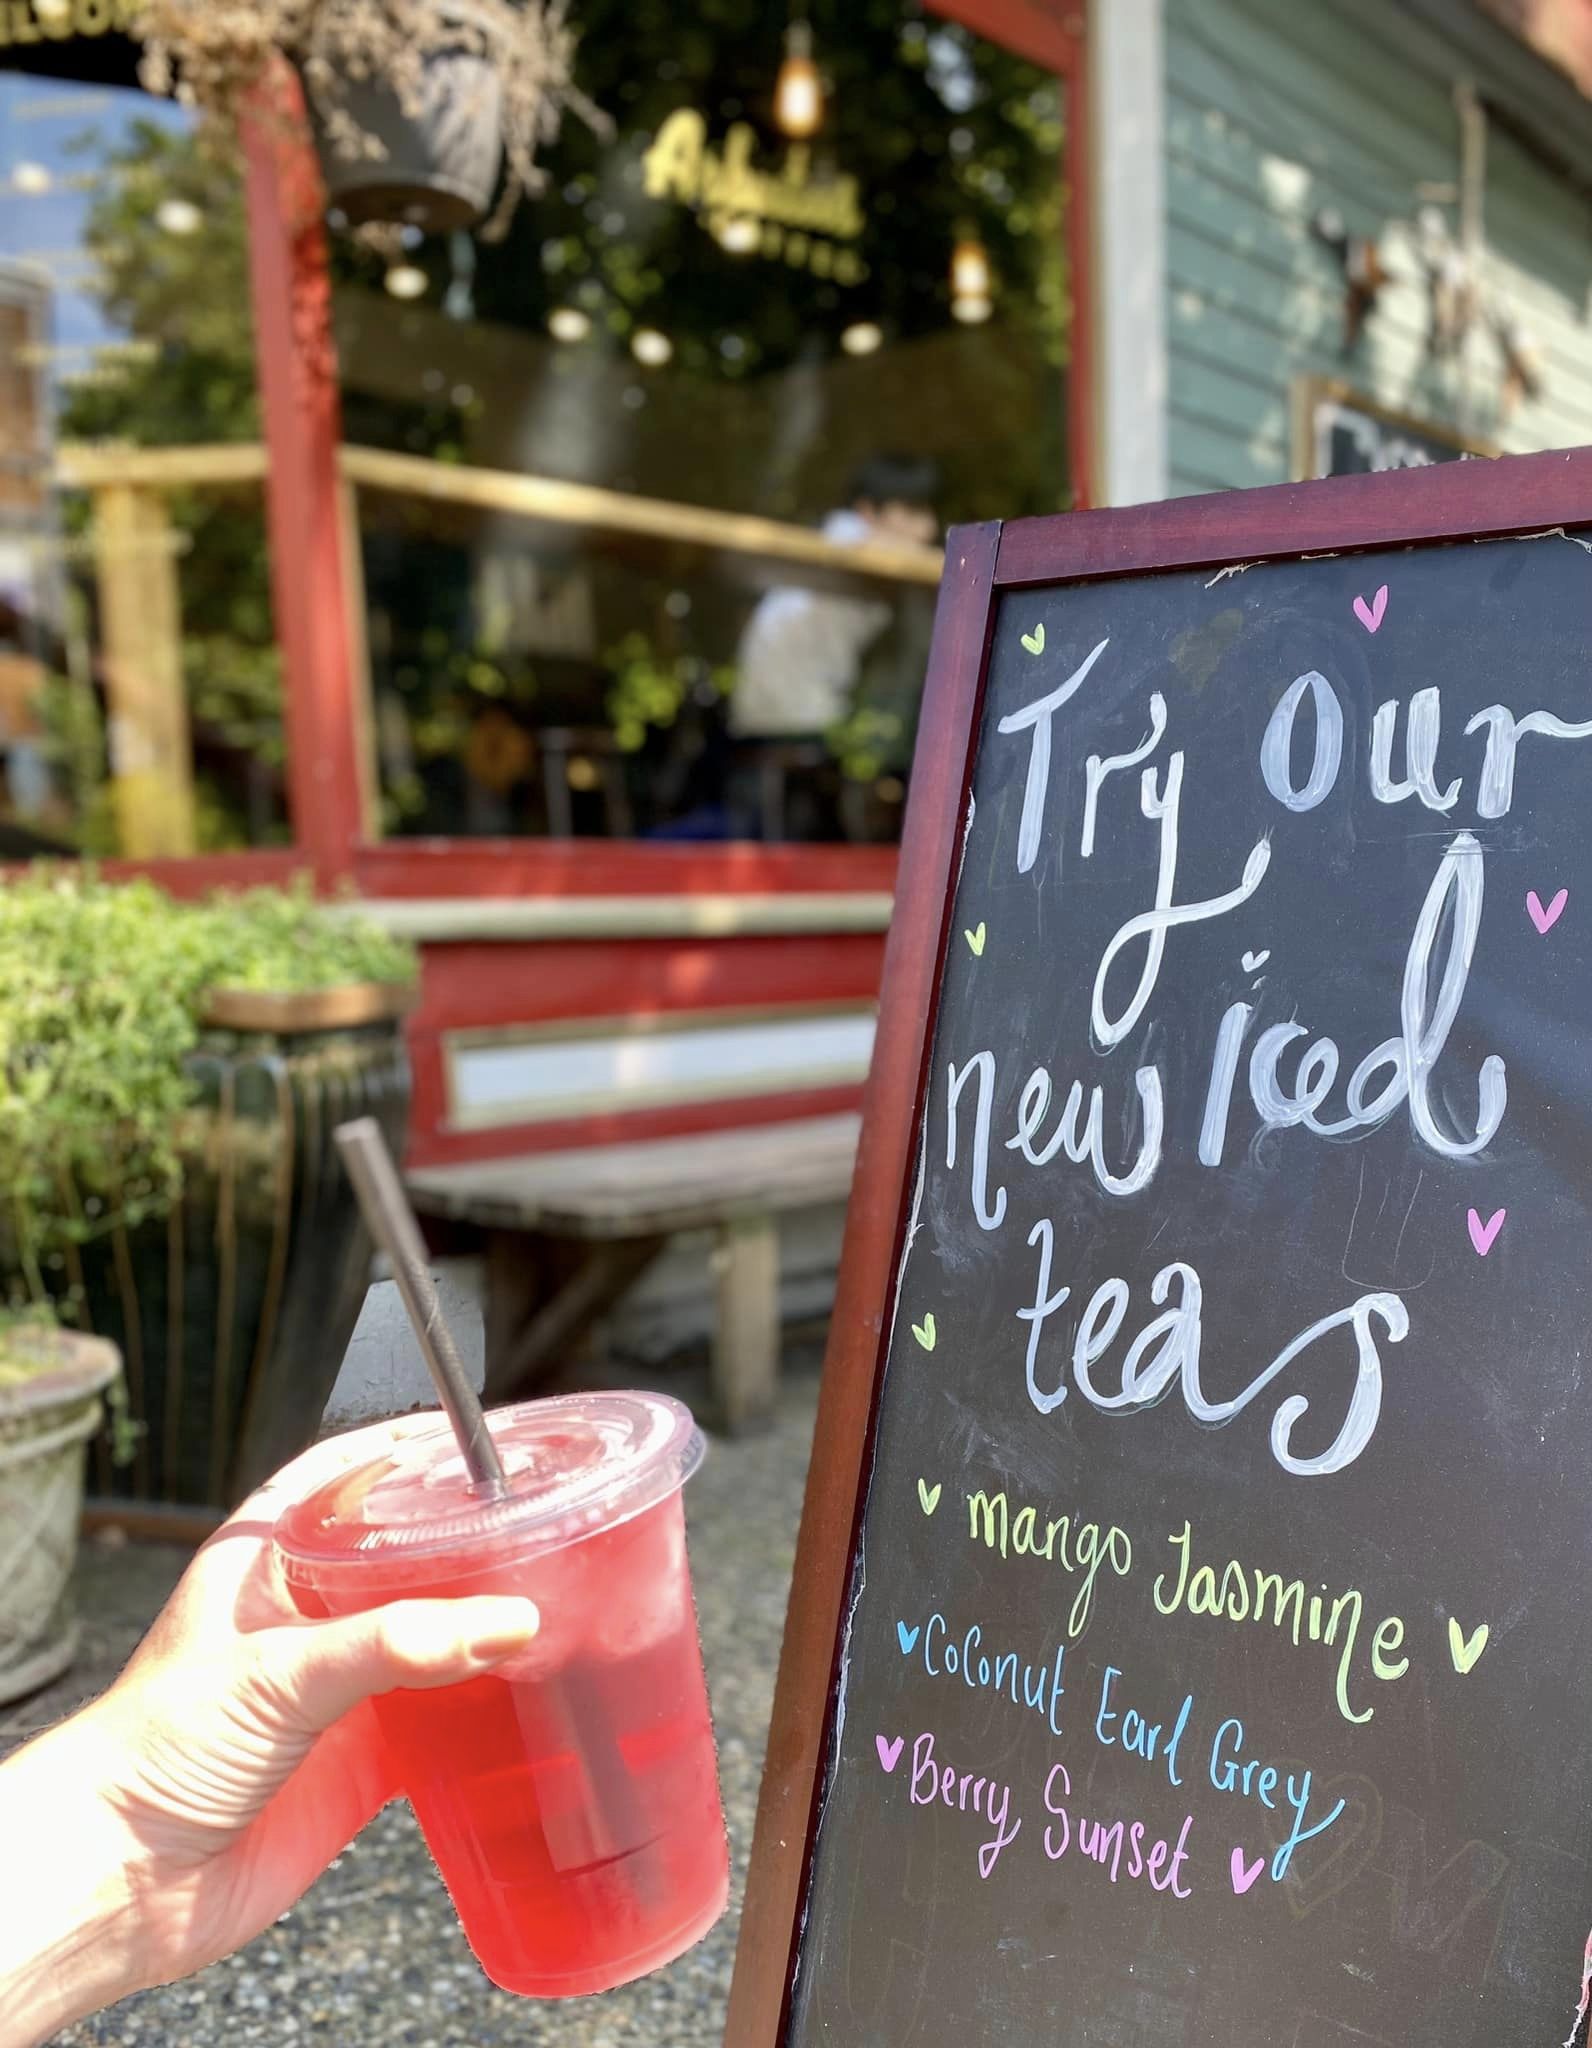 Try our
new iced
teas
mango Jasmine
Coconut Earl Grey
Berry Sunset